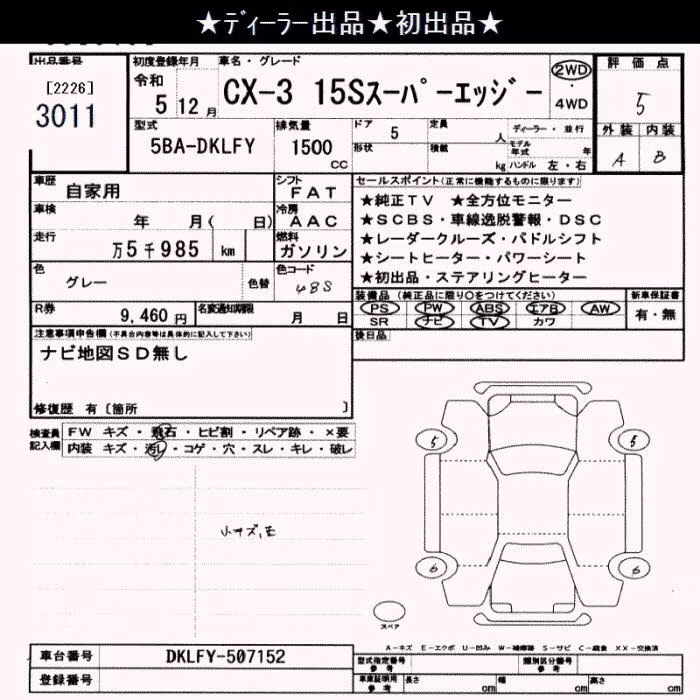 ★ディーラー出品★初出品★
出品番号
[2226]
3011
初度登録年月
令和
5 12 月
車名・グレード
CX-3 15Sスーパーエッジー
2WD
・
4WD
評価点
5
外装 内装
A B
型式
5BA-DKLFY
排気量
1500
CC
ドア 5
形状
定員 人
積載 kg
ディーラー・並行
モデル年式 年
ハンドル 左・右
車歴
自家用
シフト
FAT
車検
年 月( 日)
冷房
AAC
走行
万5千985 km
燃料
ガソリン
色
グレー
色替
色コード
48S
R券
9,460 円
名変通知期限
月 日
セールスポイント(正常に機能するものに限ります)
★純正TV ★全方位モニター
★SCBS・車線逸脱警報・DSC
★レーダークルーズ・パドルシフト
★シートヒーター・パワーシート
★初出品・ステアリングヒーター
装備品 (純正品に限り○をつけてください)
PS PW ABS エアB AW
SR ナビ TV カワ
新車保証書
有・無
後日品
注意事項申告欄(不具合内容等は具体的に記入して下さい)
ナビ地図SD無し
修復歴 有〔箇所 〕
検査員記入欄
FW キズ・飛石・ヒビ割・リペア跡・×要
内装 キズ・汚レ・コゲ・穴・スレ・キレ・破レ
小キズ,E
5 5
6 6
スペア
A-キズ E-エクボ U-凹み W-補修跡 S-サビ C-腐食 XX-交換済
車台番号 DKLFY-507152
登録番号
型式指定番号 参考
類別区分番号 参考
車庫証明用 参考
長さ cm 幅 cm 高さ cm